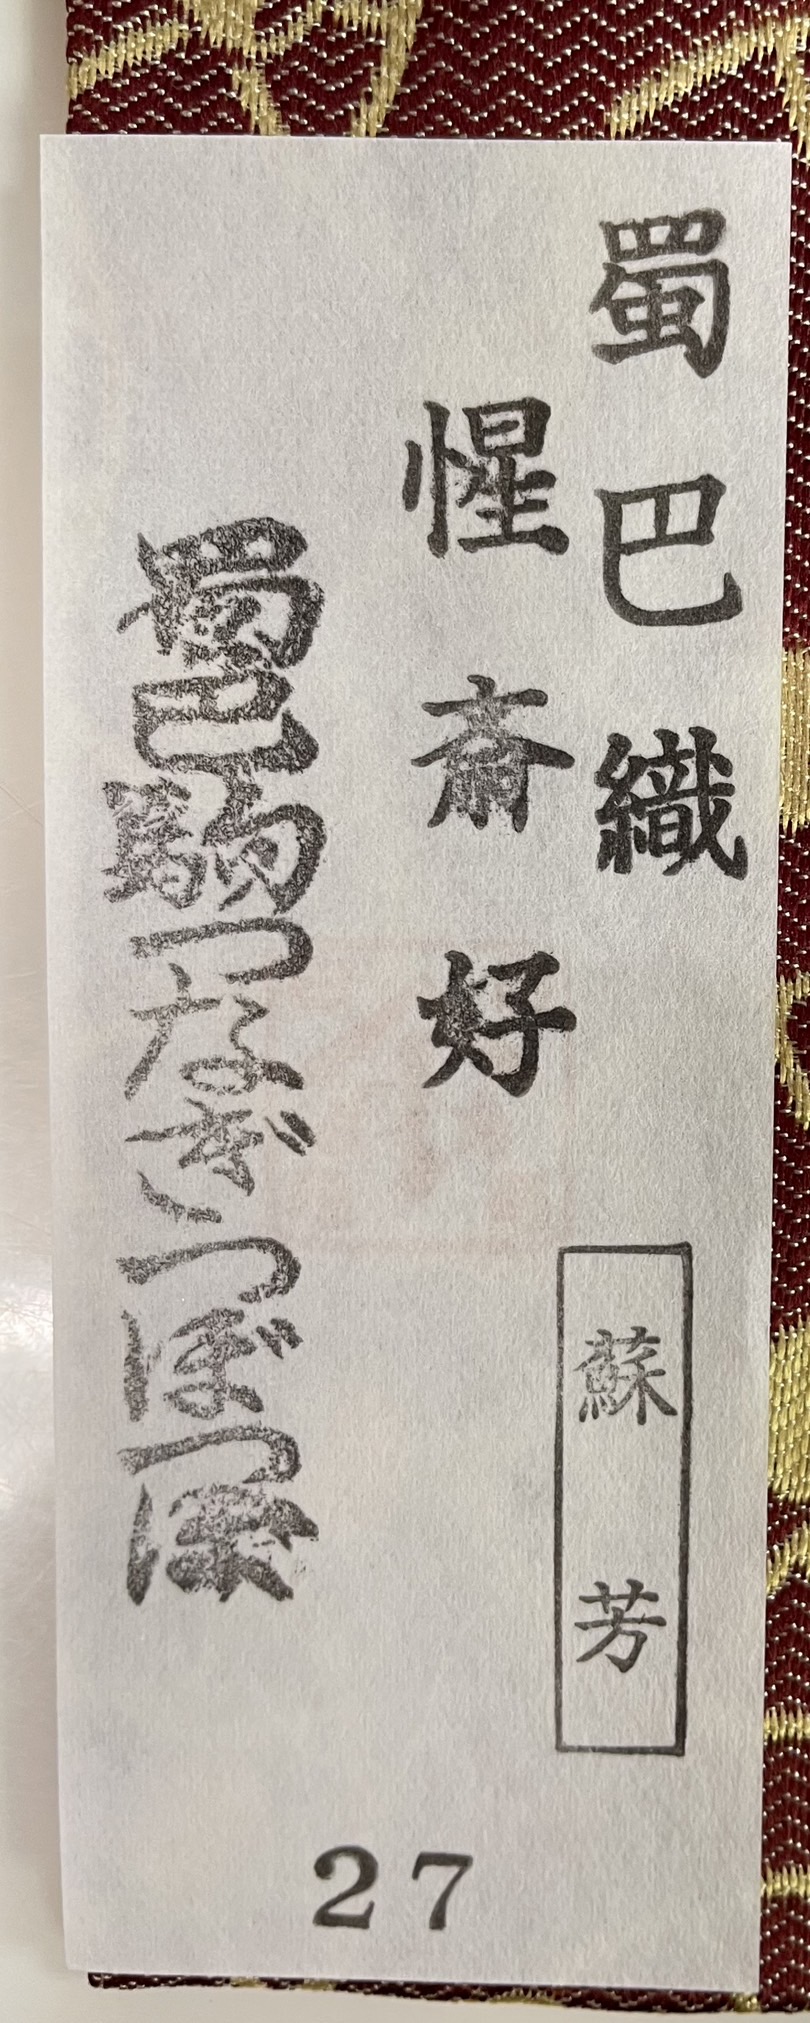 蜀巴織
蘇芳
惺斎好
蜀巴駒つなぎつぼつぼ
27